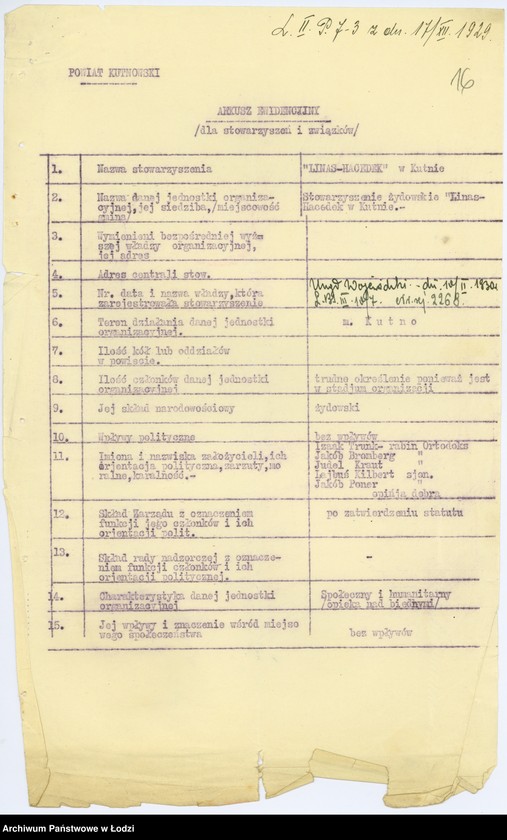 L. II. P. 7-3 z dn. 17/XII. 1929.
16
POWIAT KUTNOWSKI
ARKUSZ EWIDENCYJNY
/dla stowarzyszeń i związków/
1. Nazwa stowarzyszenia "LINAS-HACEDEK" w Kutnie
2. Nazwa danej jednostki organiza- Stowarzyszenie żydowskie "Linas-
cyjnej, jej siedziba,/miejscowość Hacedek w Kutnie.-
gmina/
3. Wymienieni bezpośredniej wyż-
szej władzy organizacyjnej,
jej adres
4. Adres centrali stow.
5. Nr. data i nazwa władzy, która Urząd Wojewódzki - dn. II. 1930r
zarejestrowała stowarzyszenie 2268.
6. Teren działania danej jednostki m. Kutno
organizacyjnej.
7. Ilość kół lub oddziałów
w powiecie.
8. Ilość członków danej jednostki trudne określenie ponieważ jest
organizacyjnej w stadjum organizacji
9. Jej skład narodowościowy żydowski
10. Wpływy polityczne bez wpływów
11. Imiona i nazwiska założycieli, ich Izaak Trunk- rabin Ortodoks
orjentacja polityczna, zarzuty, mo Jakób Bromberg "
ralne, karalność.- Judel Kraut "
Lajbuś Kilbert sjon.
Jakób Poner "
opinja dobra
12. Skład Zarządu z oznaczeniem po zatwierdzeniu statutu
funkcji jego członków i ich
orjentacji polit.
13. Skład rady nadzorczej z oznacze- -
niem funkcji członków i ich
orjentacji politycznej.
14. Charakterystyka danej jednostki Społeczny i humanitarny
organizacyjnej /opieka nad biednymi/
15. Jej wpływy i znaczenie wśród miejsco bez wpływów
wego społeczeństwa
Archiwum Państwowe w Łodzi